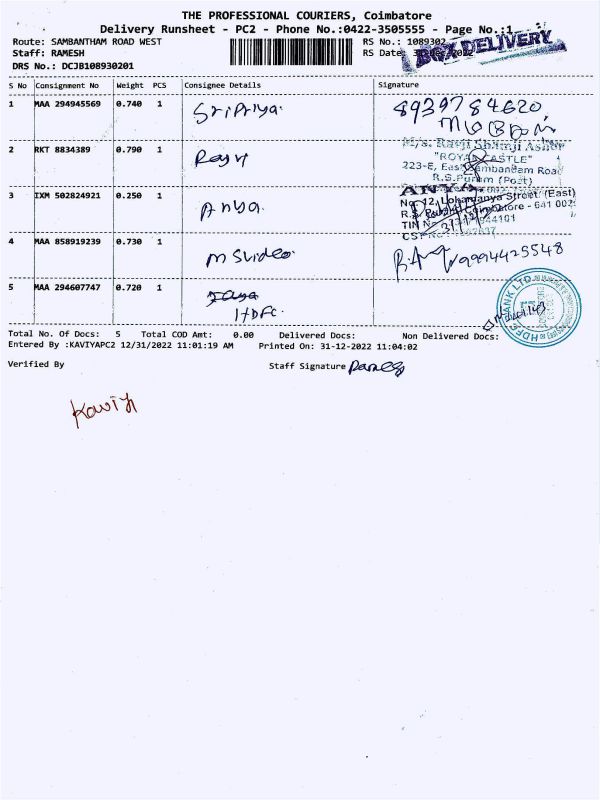 THE PROFESSIONAL COURIERS, Coimbatore
Delivery Runsheet - PC2 - Phone No.:0422-3505555 - Page No.:1
Route: SAMBANTHAM ROAD WEST
RS No.: 1089302
Staff: RAMESH
RS Date:
BOX DELIVERY
DRS No.: DCJB108930201
S No Consignment No Weight PCS Consignee Details Signature
1 MAA 294945569 0.740 1 Sripriya. 8939784620
2 RKT 8834389 0.790 1 M/s. Ravji
"ROYAL CASTLE"
223-E, East Sambandam Road
R.S.Puram (Post)
3 IXM 502824921 0.250 1 Anya. ANYA
No. 12, Lokamanya Street (East)
Coimbatore - 641 002
TIN
4 MAA 858919239 0.730 1 M Svideo 9994425548
5 MAA 294607747 0.720 1
HDFC.
HDFC BANK LTD
Total No. Of Docs: 5 Total COD Amt: 0.00 Delivered Docs: Non Delivered Docs:
Entered By :KAVIYAPC2 12/31/2022 11:01:19 AM Printed On: 31-12-2022 11:04:02
Verified By Staff Signature
Kaviya